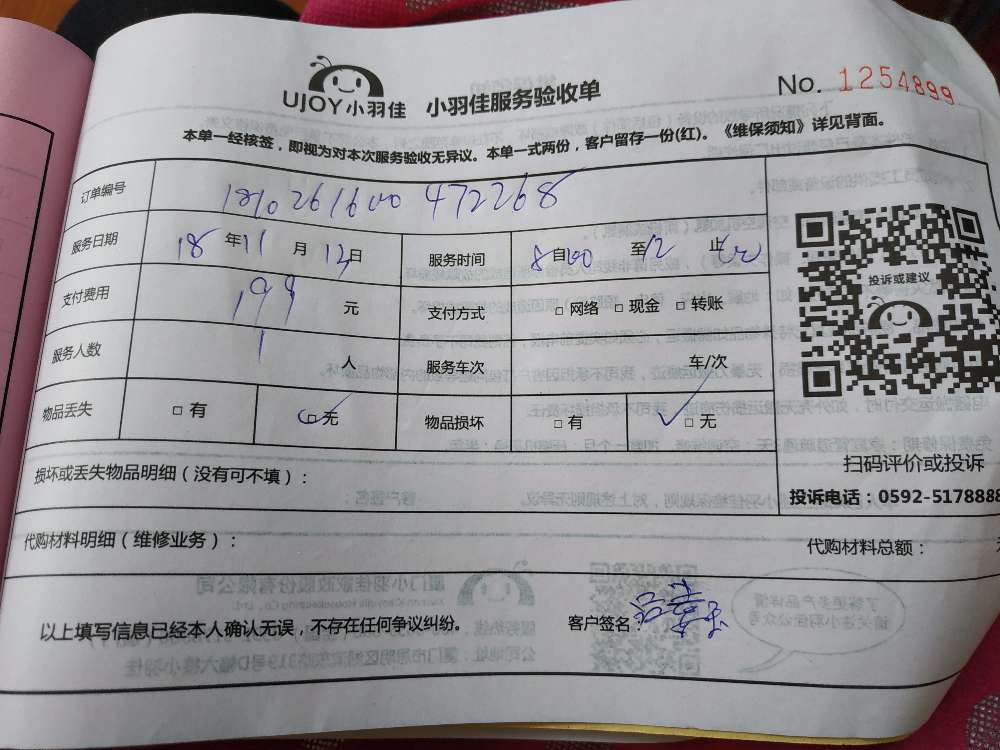 UJOY小羽佳 小羽佳服务验收单 No. 1254899
本单一经核签，即视为对本次服务验收无异议。本单一式两份，客户留存一份(红)。《维保须知》详见背面。
订单编号 1810261600 472268
服务日期 18年11月12日 服务时间 8自00至12止00
支付费用 199元 支付方式 □ 网络 □ 现金 □ 转账
服务人数 1人 服务车次 车/次
物品丢失 □ 有 □ 无 物品损坏 □ 有 □ 无
投诉或建议
扫码评价或投诉
损坏或丢失物品明细（没有可不填）：
投诉电话：0592-5178888
代购材料明细（维修业务）： 代购材料总额：
以上填写信息已经本人确认无误，不存在任何争议纠纷。 客户签名：